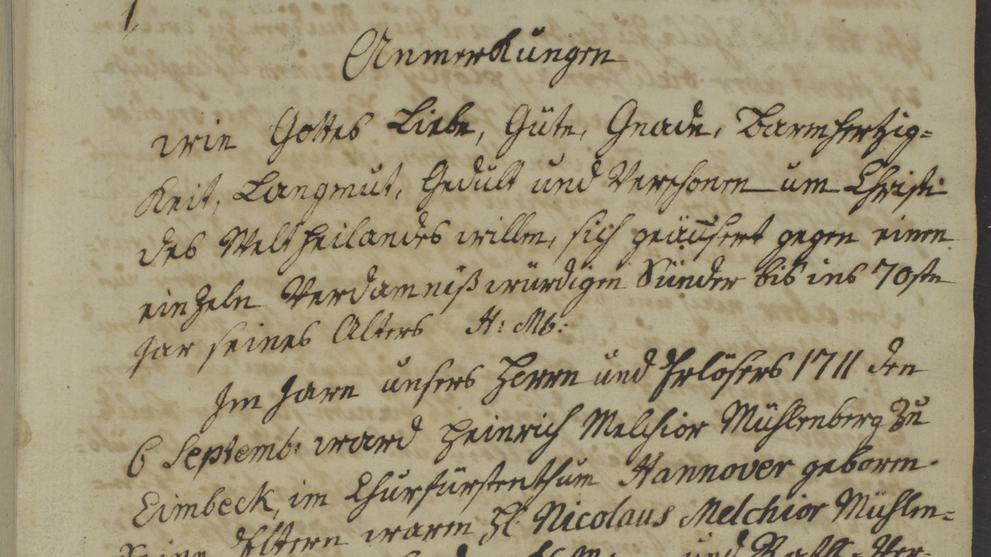 Anmerkungen
wie Gottes Liebe, Güte, Gnade, Barmhertzig=
keit, Langmut, Gedult und Verschonen um Christi
des Weltheilandes willen, sich geäusert gegen einen
einzeln Verdamniß würdigen Sünder bis ins 70ste
Jar seines Alters H: Mb:
Im Jare unsers Herrn und Erlösers 1711 den
6 Septemb: ward Heinrich Melchior Mühlenberg zu
Eimbeck, im Churfürstenthum Hannover geboren.
Seine Eltern waren H. Nicolaus Melchior Mühlen=
und